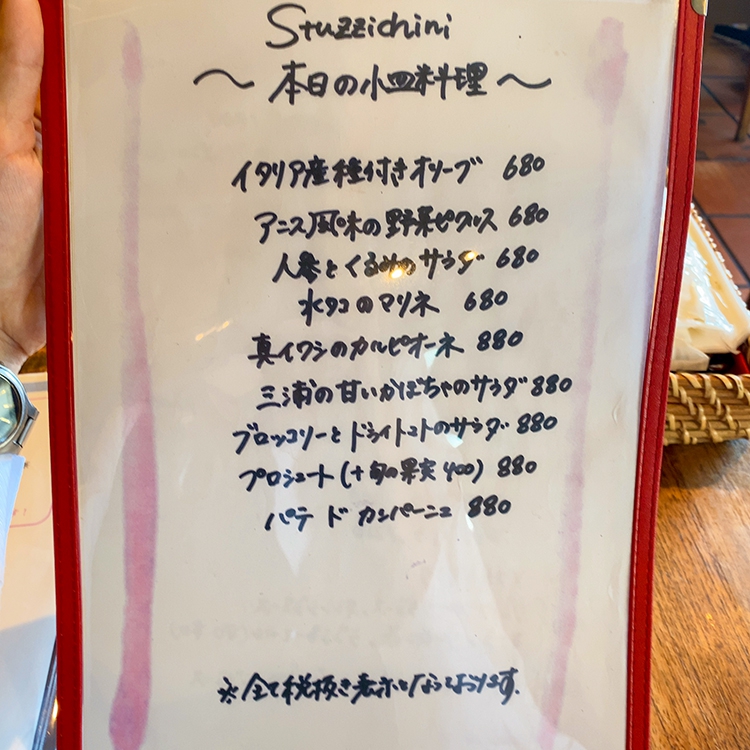 Stuzzichini
～ 本日の小皿料理 ～
イタリア産種付きオリーブ 680
アニス風味の野菜ピクルス 680
人参とくるみのサラダ 680
水タコのマリネ 680
真イワシのカルピオーネ 880
三浦の甘いかぼちゃのサラダ 880
ブロッコリーとドライトマトのサラダ 880
プロシュート (+旬の果実 400) 880
パテ ド カンパーニュ 880
※全て税抜き表示となっております。